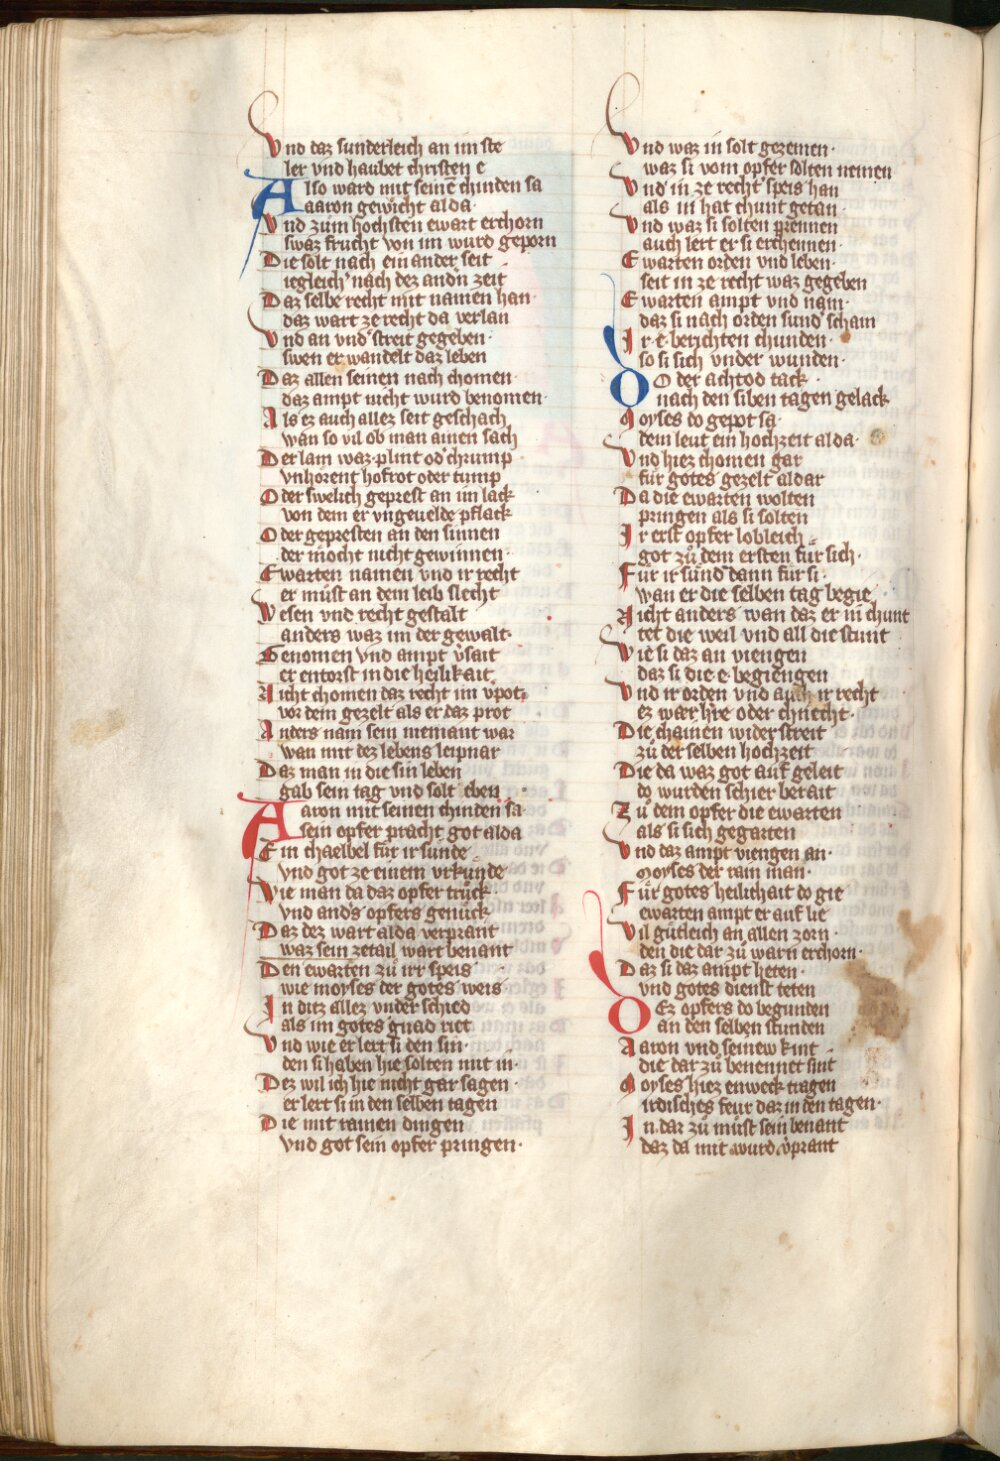 Vnd daz sunderleich an im ste
ler vnd haubet christen e
Also ward mit seinē chinden sa
aaron gewicht alda
Vnd zum hochsten ewart erchorn
swaz frucht von im wurd geporn
Die solt nach ein ander seit
iegleich nach dez andn zeit
Daz selbe recht mit namen han
daz wart ze recht da verlan
Vnd an vnd streit gegeben·
swen er wandelt daz leben
Daz allen seinen nach chomen·
daz ampt nicht wurd benomen·
Als ez auch allez seit geschach
wan so vil ob man ainen sach
Der lam waz plint od chrump
vnhorent hofrot oder tump
Oder swelich geprest an im lack
von dem er vngeuelde pflack
Oder gepresten an den sinnen
der mocht nicht gewinnen·
Ewarten namen vnd ir recht
er můst an dem leib slecht
Wesen vnd recht gestalt
anders waz im der gewalt·
Genomen vnd ampt v̉sait
er entorst in die heilikait
Nicht chomen daz recht im vpot
vor dem gezelt als er daz prot
Anders nam sein niemant war
wan mit dez lebens leipnar
Daz man in die sin leben
gab sein tag vnd solt eben
Aaron mit seinen chinden sa
sein opfer pracht got alda
Ein chaelbel für ir sunde
vnd got ze einem vrkunde
Wie man da daz opfer trůck
vnd anders opfers genůck
Daz dez wart alda verprant
waz sein zetail wart benant
Den ewarten zů irr speis
wie moyses der gotes weis
In ditz allez vnder schied
als im gotes gnad riet
Vnd wie er lert si den sin·
den si haben hie solten mit in·
Dez wil ich hie nicht gar sagen·
er lert si in den selben tagen
Die mit rainen dingen
vnd got sein opfer pringen·
Vnd waz in solt gezemen·
waz si vom opfer solten nemen
Vnd in ze recht speis han
als in hat chunt getan
Vnd waz si solten prennen
auch lert er si erchennen·
Ewarten orden vnd leben·
seit in ze recht waz gegeben
Ewarten ampt vnd nam·
daz si nach orden sund scham
Ir e berichten chunden·
so si sich vnder wunden·
DO der achtod tack·
nach den siben tagen gelack
Moyses do gepot sa·
dem leut ein hochzeit alda·
Vnd hiez chomen gar
für gotes gezelt aldar
Da die ewarten wolten
pringen als si solten
Ir erst opfer lobleich
got zů dem ersten für sich·
Für ir sünd dann für si·
wan er die selben tag begie
Nicht anders wan daz er in chunt
tet die weil vnd all die stunt
Wie si daz an viengen
daz si die e begiengen
Vnd ir orden vnd auch ir recht
ez wær h̓re oder chnecht·
Die chamen wider streit
zů der selben hochzeit
Die da waz got auf geleit
do wurden schier berait
Zů dem opfer die ewarten
als si sich gegarten
Vnd daz ampt viengen an·
moyses der rain man·
Für gotes heilichait do gie
ewarten ampt er auf lie
Vil gütleich an allen zorn·
den die dar zů warn erchorn·
Daz si daz ampt heten·
vnd gotes dienst teten
DEz opfers do begunden
an den selben stunden
Aaron vnd seinew kint
die dar zů benennet sint
Moyses hiez enweck tragen
irdisches feur daz in den tagen·
In dar zů můst sein benant
daz da mit wurd v̉prant